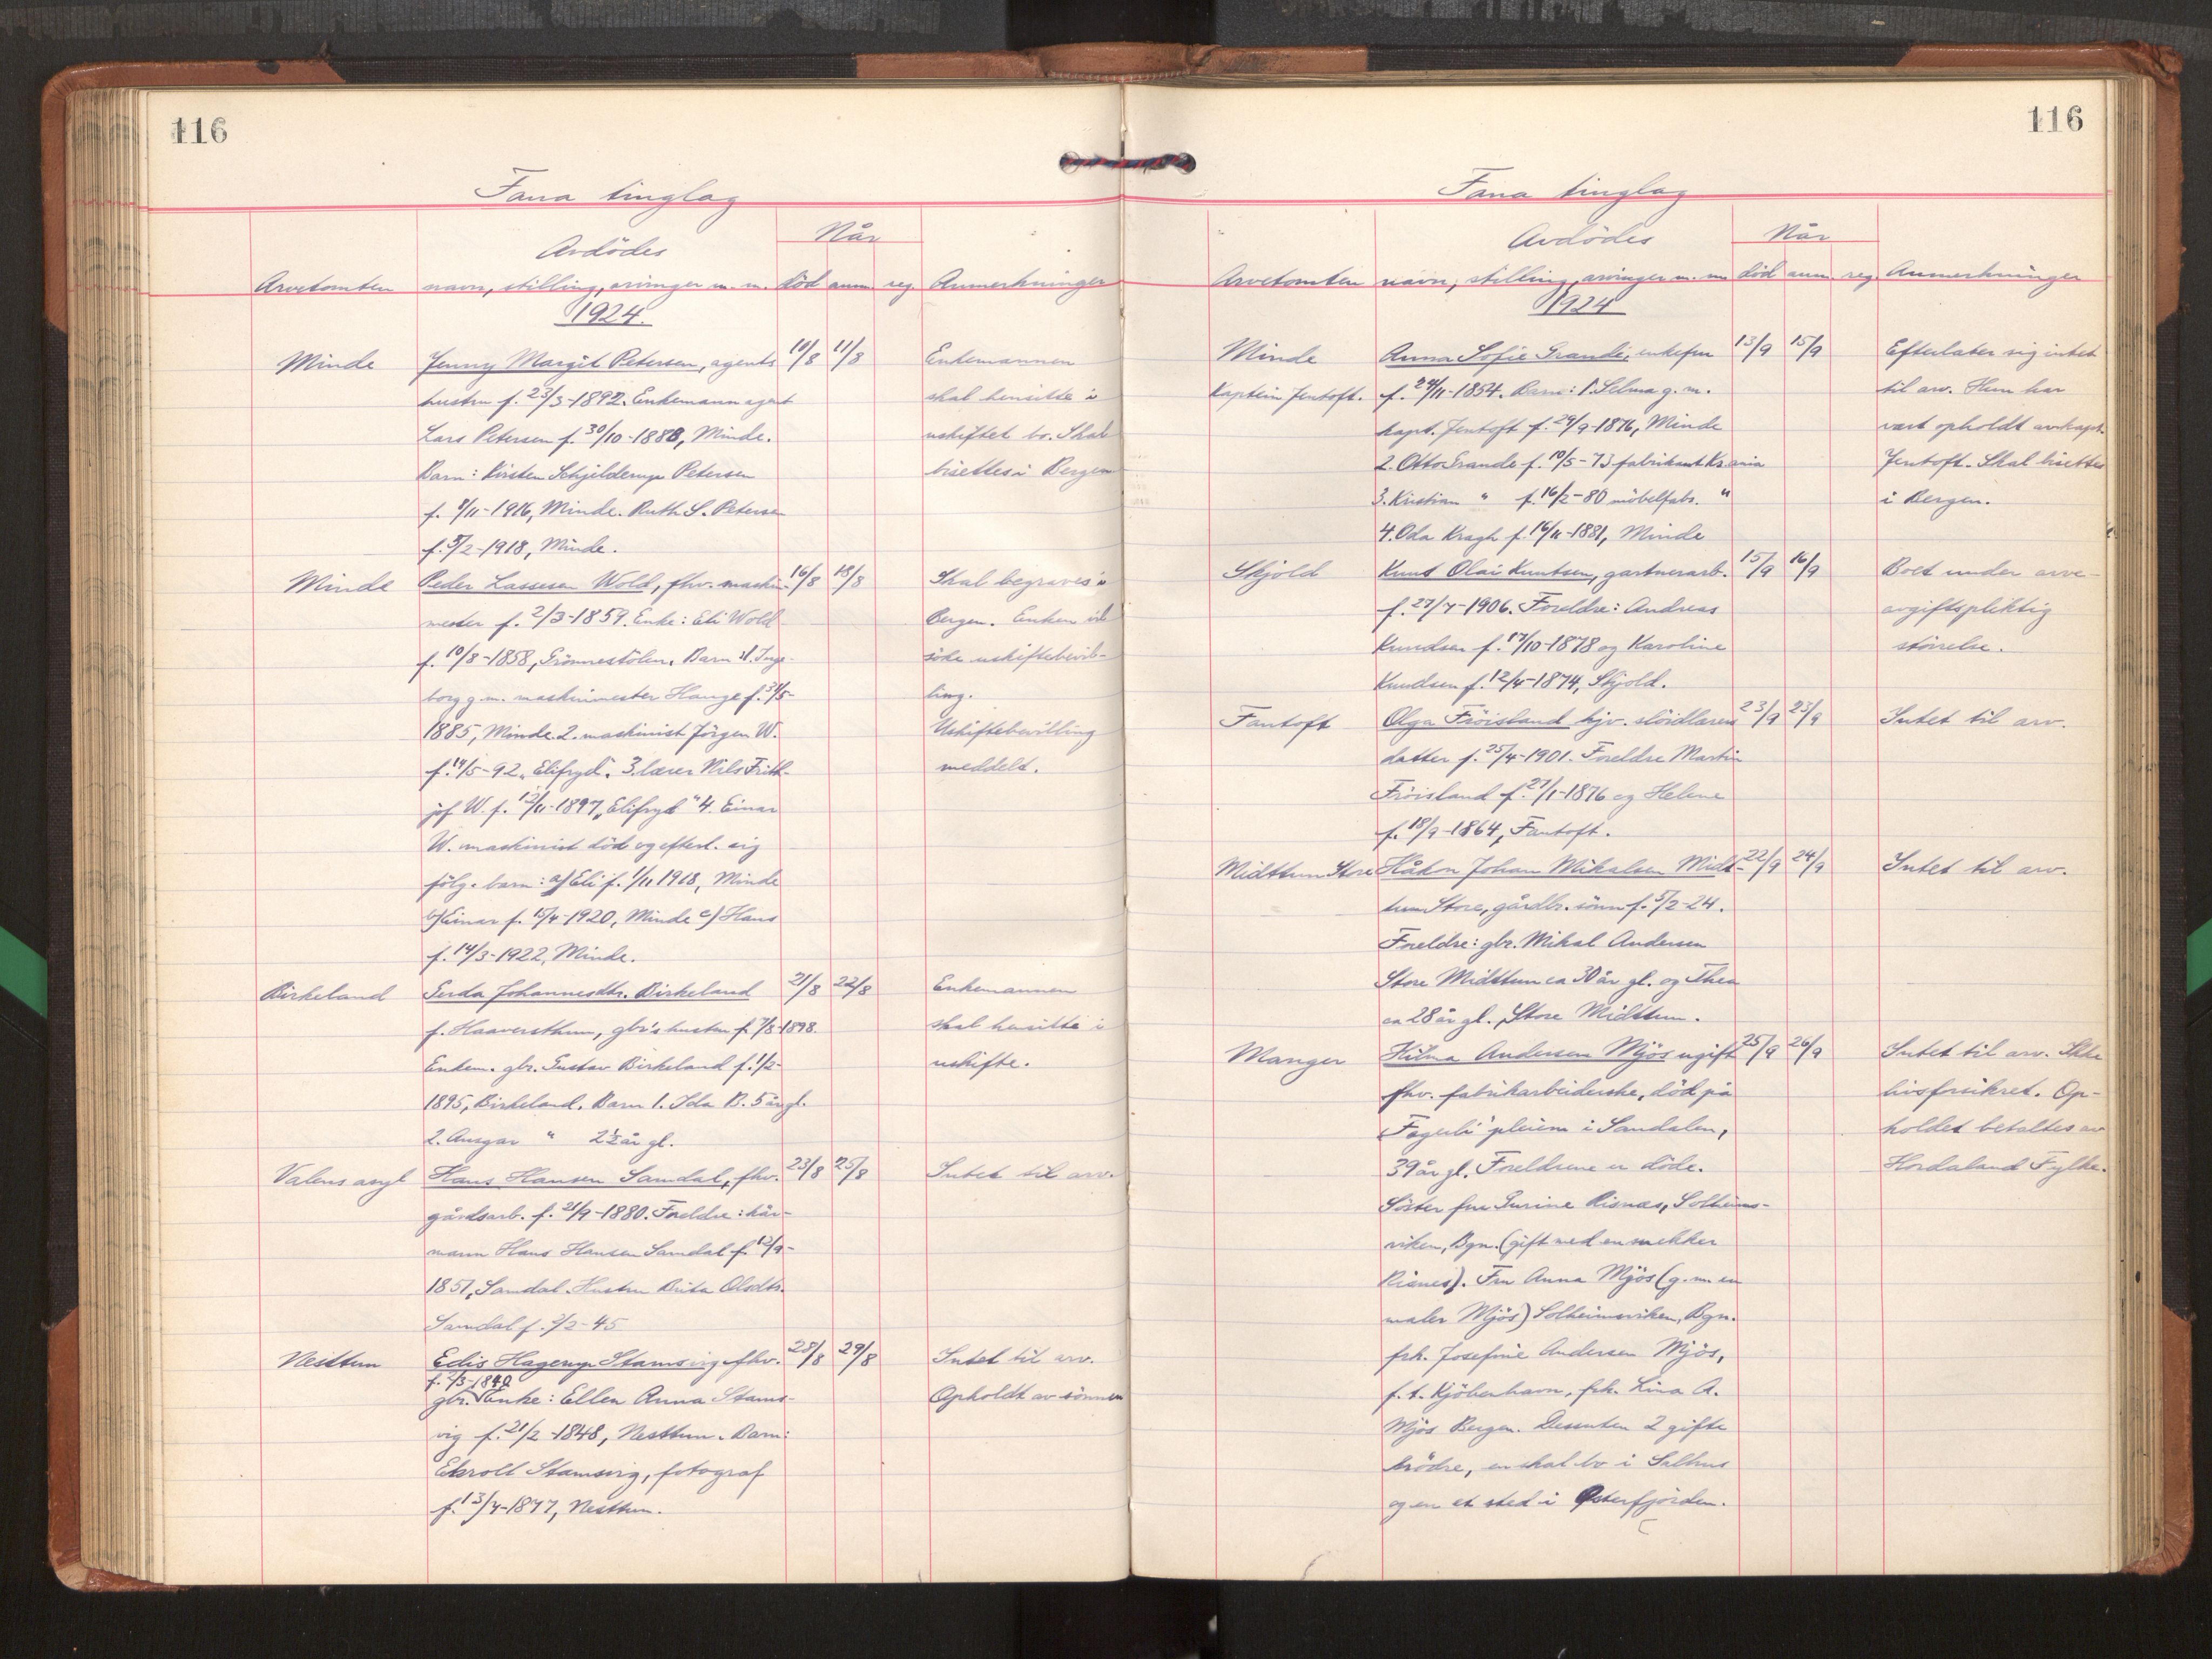 116
Fana tinglag
Når
Avdödes
Arvetomten navn, stilling, arvinger m. m. död anm. reg. Anmerkninger
1924.
Minde Jenny Margit Petersen, agents 10/8 11/8 Enkemannen
hustru f. 23/3-1892. Enkemann agent skal hensitte i
Lars Petersen f. 30/10-1888, Minde. uskiftet bo. Skal
Barn: Kirsten Schjelderup Petersen bisettes i Bergen
f. 8/11-1916, Minde. Ruth S. Petersen
f. 5/2-1918, Minde.
Minde Peder Lassesen Wold, fhv. maskin- 16/8 18/8 Skal begraves i
mester f. 2/3-1859. Enke: Eli Wold Bergen. Enken vil
f. 10/8-1858, Grönnestölen. Barn: 1. Inge- söke uskiftebevil-
borg g.m. maskinmester Hauge f. 31/5- ling.
1885, Minde. 2. maskinist Jörgen W. Uskiftebevilling
f. 14/5-92 „Elifryd". 3. lærer Nils Frith- meddelt.
jof W. f. 12/11-1897 „Elifryd" 4. Einar
W. maskinist död og efterl. sig
fölg. barn: a) Eli f. 1/11 1918, Minde
b) Einar f. 15/4-1920, Minde c) Hans
f. 14/3-1922, Minde.
Birkeland Gerda Johannesdtr. Birkeland 21/8 22/8 Enkemannen
f. Haaversthun, gbr's hustru f. 7/8-1898. skal hensitte i
Enkem. gbr. Gustav Birkeland f. 1/2- uskifte.
1895, Birkeland. Barn 1. Ida B. 5 år gl.
2. Ansgar " 2½ år gl.
Valens asyl Hans Hansen Samdal, fhv. 23/8 25/8 Intet til arv.
gårdsarb. f. 21/9-1880. Foreldre: kår-
mann Hans Hansen Samdal f. 12/9-
1851, Samdal. Hustru Brita Olsdtr.
Samdal f. 2/2-45
Nesttun Edis Hagerup Stamsvig fhv. 28/8 29/8 Intet til arv.
f. 2/3-1840
gbr. Enke: Ellen Anna Stams- Opholdt av sönnen
vig f. 21/2-1848, Nesttun. Barn:
Ekroll Stamsvig, fotograf
f. 13/4-1877, Nesttun.
116
Fana tinglag
Når
Avdödes
Arvetomten navn, stilling, arvinger m. m. död anm. reg. Anmerkninger
1924
Minde Anna Sofie Grande, enkefru 13/9 15/9 Efterlater sig intet
Kaptein Jentoft. f. 24/11-1854. Barn: 1. Selma g. m. til arv. Hun har
kapt. Jentoft f. 29/9-1876, Minde vært opholdt av kapt.
2. Otto Grande f. 10/5-73 fabrikant Kr.ania Jentoft. Skal bisettes
3. Kristian " f. 16/2-80 möbelfabr. " i Bergen.
4. Oda Kragh f. 16/11-1881, Minde
Skjold Knut Olai Knutsen, gartnerarb. 15/9 16/9 Boet under arve-
f. 27/7-1906. Foreldre: Andreas avgiftspliktig
Knudsen f. 17/10-1878 og Karoline störrelse.
Knudsen f. 12/4-1874, Skjold.
Fantoft Olga Fröisland hjv. slöidlærers 23/9 25/9 Intet til arv.
datter f. 25/4-1901. Foreldre Martin
Fröisland f. 27/1-1876 og Helene
f. 18/9-1864, Fantoft.
Midttun Store Håkon Johan Mikalsen Midt- 22/9 24/9 Intet til arv.
tun Store, gårdbr. sönn f. 5/2-24.
Foreldre: gbr. Mikal Andersen
Store Midttun ca 30 år gl. og Thea
ca 28 år gl., Store Midttun.
Manger Hilma Andersen Mjös ugift 25/9 26/9 Intet til arv. Ikke
fhv. fabrikarbeiderske, död på livsforsikret. Op-
Fagerli pleiem i Samdalen, holdet betaltes av
39 år gl. Foreldrene er döde. Hordaland Fylke.
Söster fru Gurine Risnes, Solheims-
viken, Bgn. (gift med en snekker
Risnes). Fru Anna Mjös (g. m. en
maler Mjös) Solheimsviken, Bgn.
frk. Josefine Andersen Mjös,
f. t. Kjöbenhavn, frk. Lina A.
Mjös Bergen. Dessuten 2 gifte
brödre, en skal bo i Salhus
og en et sted i Osterfjorden.